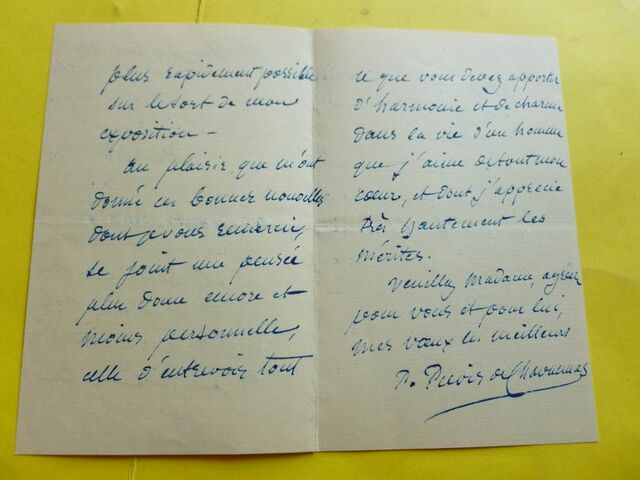 plus rapidement possible
sur le sort de mon
exposition –
Au plaisir que m'ont
donné ces bonnes nouvelles
dont je vous remercie,
se joint une pensée
plus douce encore et
moins personnelle,
celle d'entrevoir tout
ce que vous devez apporter
d'harmonie et de charme
dans la vie d'un homme
que j'aime de tout mon
cœur, et dont j'apprécie
très hautement les
mérites.
Veuillez Madame, agréer
pour vous et pour lui,
mes vœux les meilleurs
P. Puvis de Chavannes